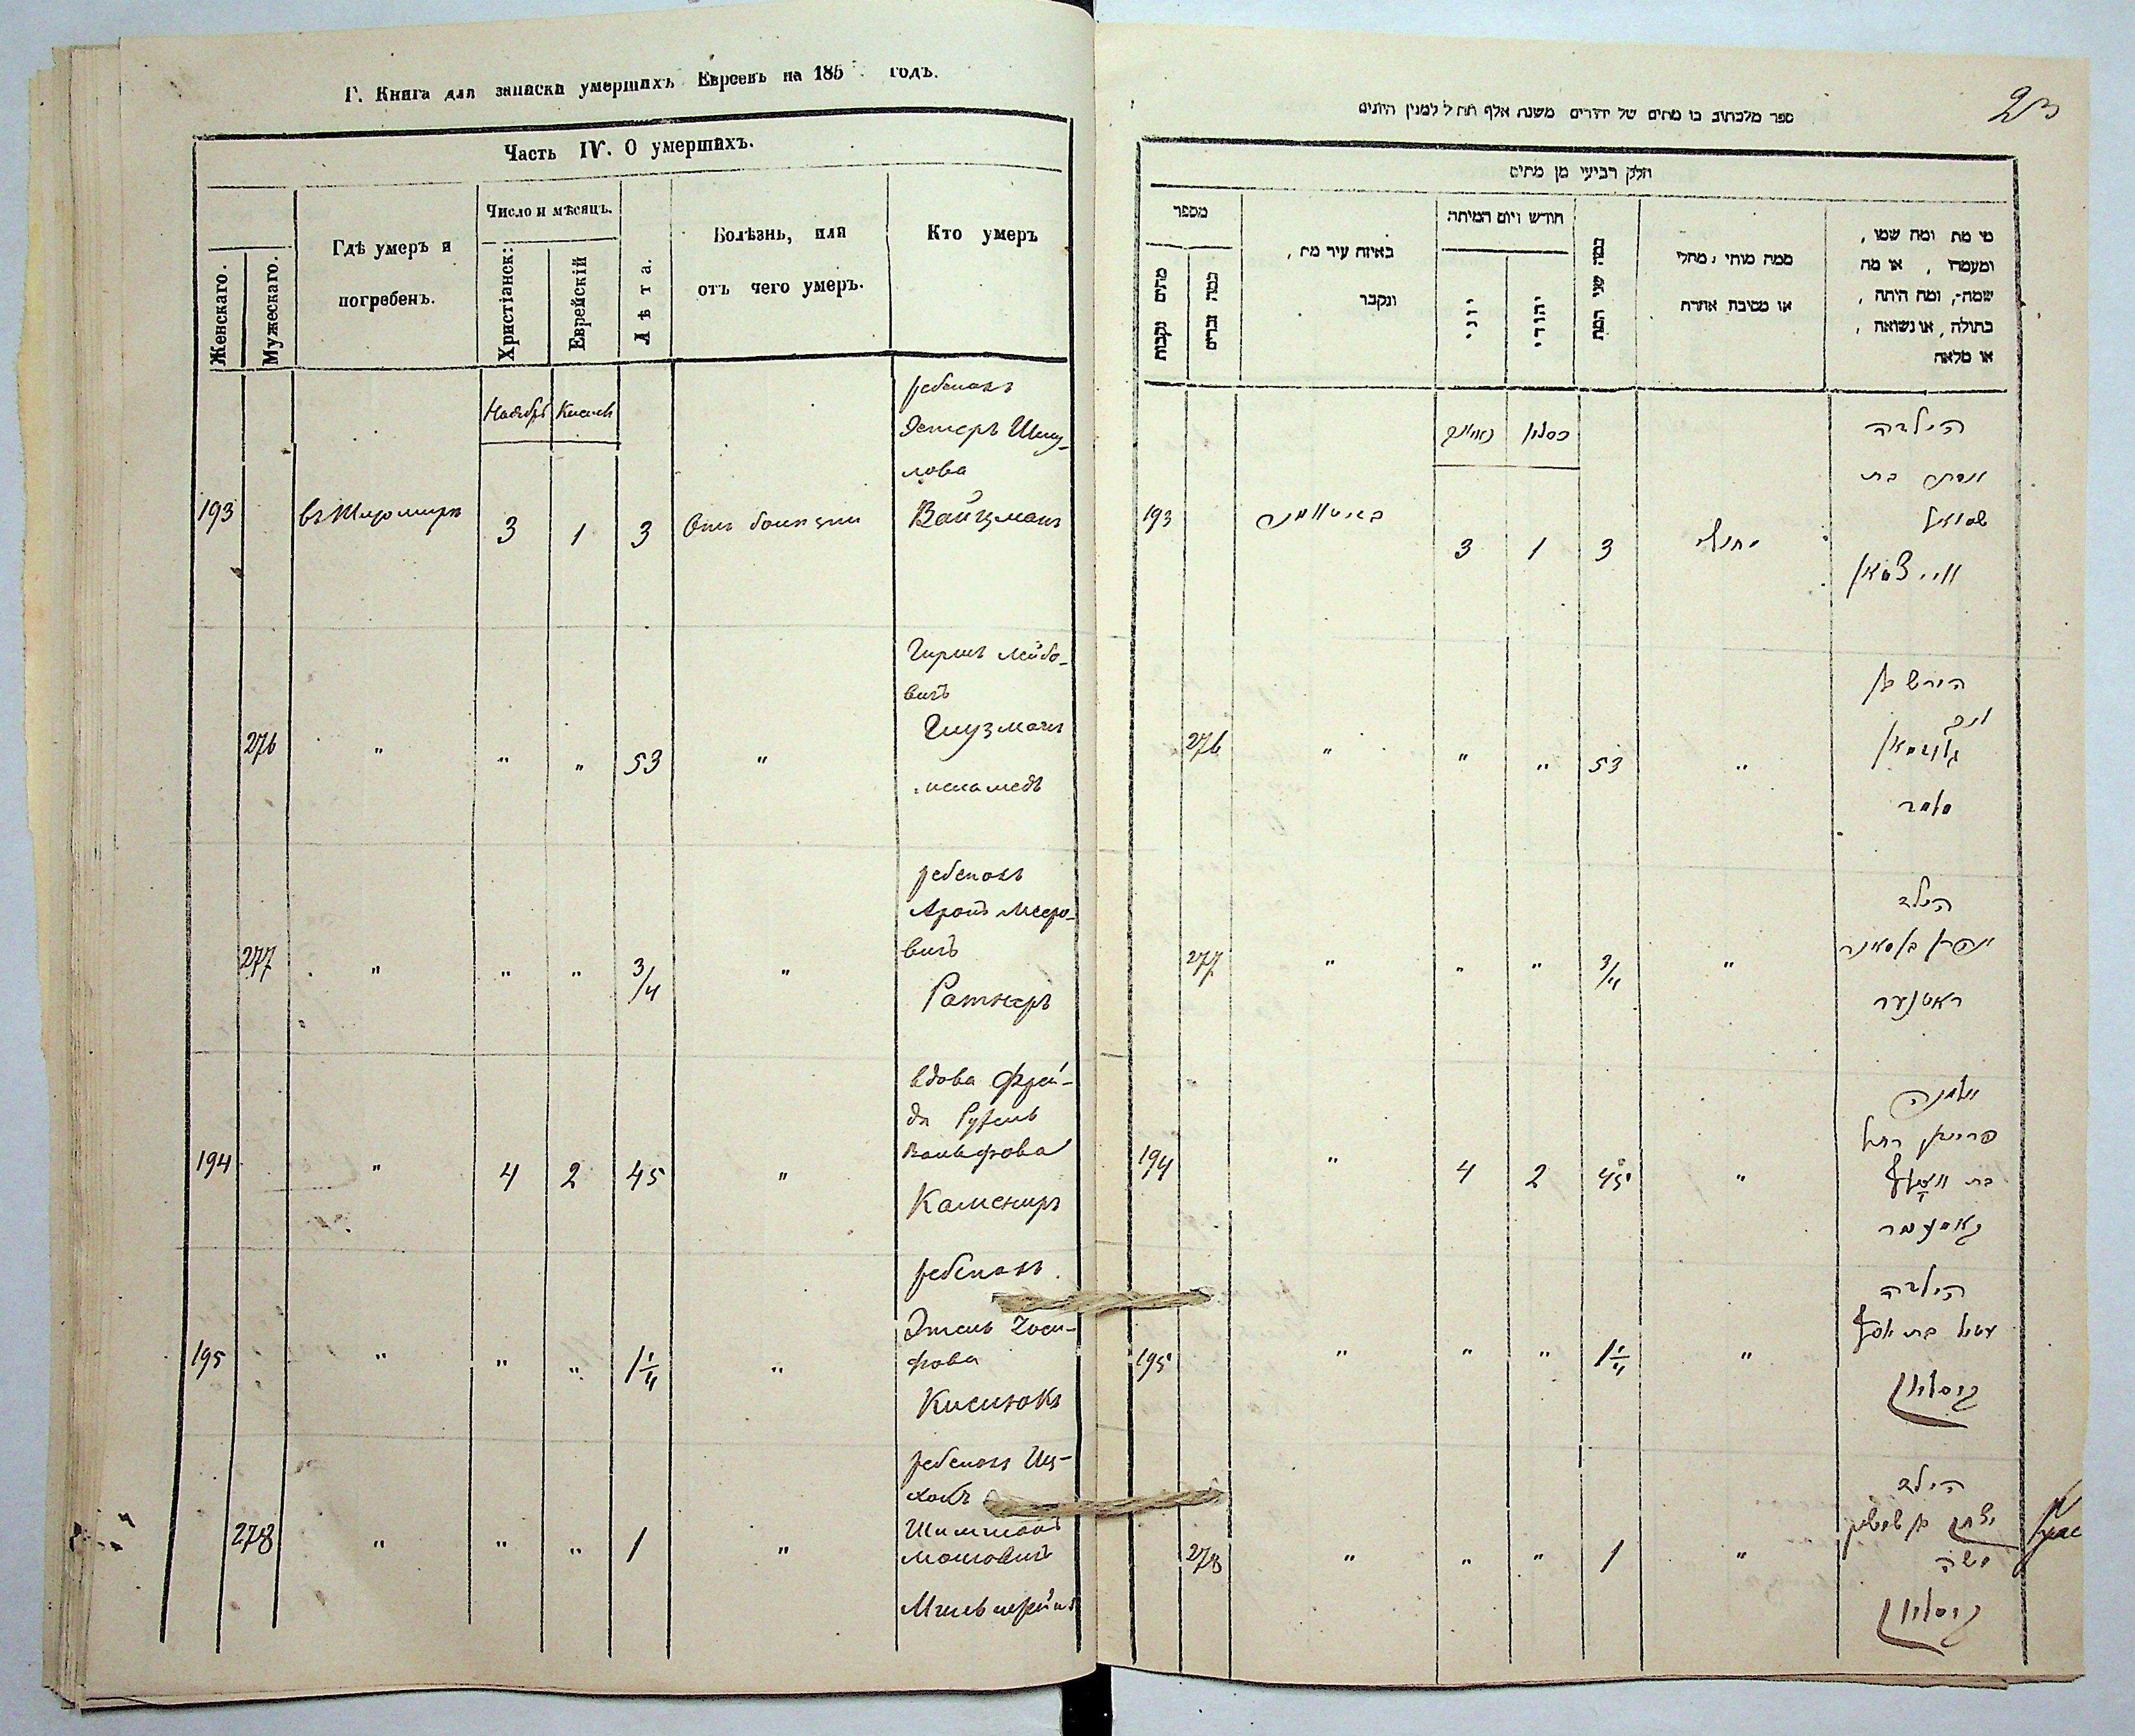 Г. Книга для записки умершихъ Евреевъ на 185 годъ.
Часть IV. О умершихъ.
Женскаго.
Мужескаго.
Гдѣ умеръ и
погребенъ.
Число и мѣсяцъ.
Христіанск:
Еврейскій
Лѣта.
Болѣзнь, или
отъ чего умеръ.
Кто умеръ
Ноябрь Кислевъ
193 въ Житомирѣ 3 1 3 Отъ болезни
ребенокъ
Эстеръ Шму-
лова
Вайцманъ
276 " " " 53 "
Гиршъ Лейбо-
вичъ
Глузманъ
меламедъ
277 " " " 3/4 "
ребенокъ
Аронъ Мееро-
вичъ
Ратнеръ
194 " 4 2 45 "
вдова Фрей-
да Рухль
Вольфова
Камениръ
195 " " " 1 1/4 "
ребенокъ
Этель Іоси-
фова
Кисилюкъ
278 " " " 1 "
ребенокъ Иц-
хокъ
Шимшонъ
Мошковичъ
23
ספר מלכתוב בו מתים של יהודים משנת אלף תת ל למנין היונים
חלק רביעי מן מתים
מספר
מתים נקבות
כמה זכרים
באיזה עיר מת,
ונקבר
חודש ויום המיתה
יוני
יהודי
כמה שני המת
ממה מותי, מחלי
או מסיבה אחרת
מי מת ומה שמו,
ומעמדו, או מה
שמה, ומה היתה,
בתולה, או נשואה,
או מלאה
כסליו
193 3 1 3
הילדה
אסתר בת
שמואל
ווייצמאן
276 " " " 53 "
הירש בן
ליב
גלוזמאן
מלמד
277 " " " 3/4 "
הילד
אהרן בן מאיר
ראטנער
194 " 4 2 45 "
אלמנה
פריידא רחל
בת וואלף
195 " " " 1 1/4 "
הילדה
עטיל בת יוסף
278 " " " 1 "
הילד
יצחק בן שמשון
משה